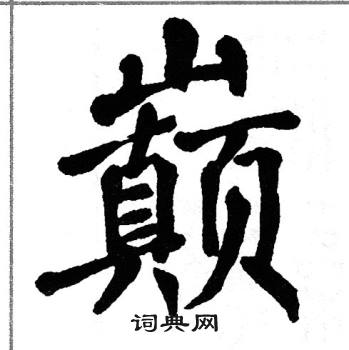 巅
词典网